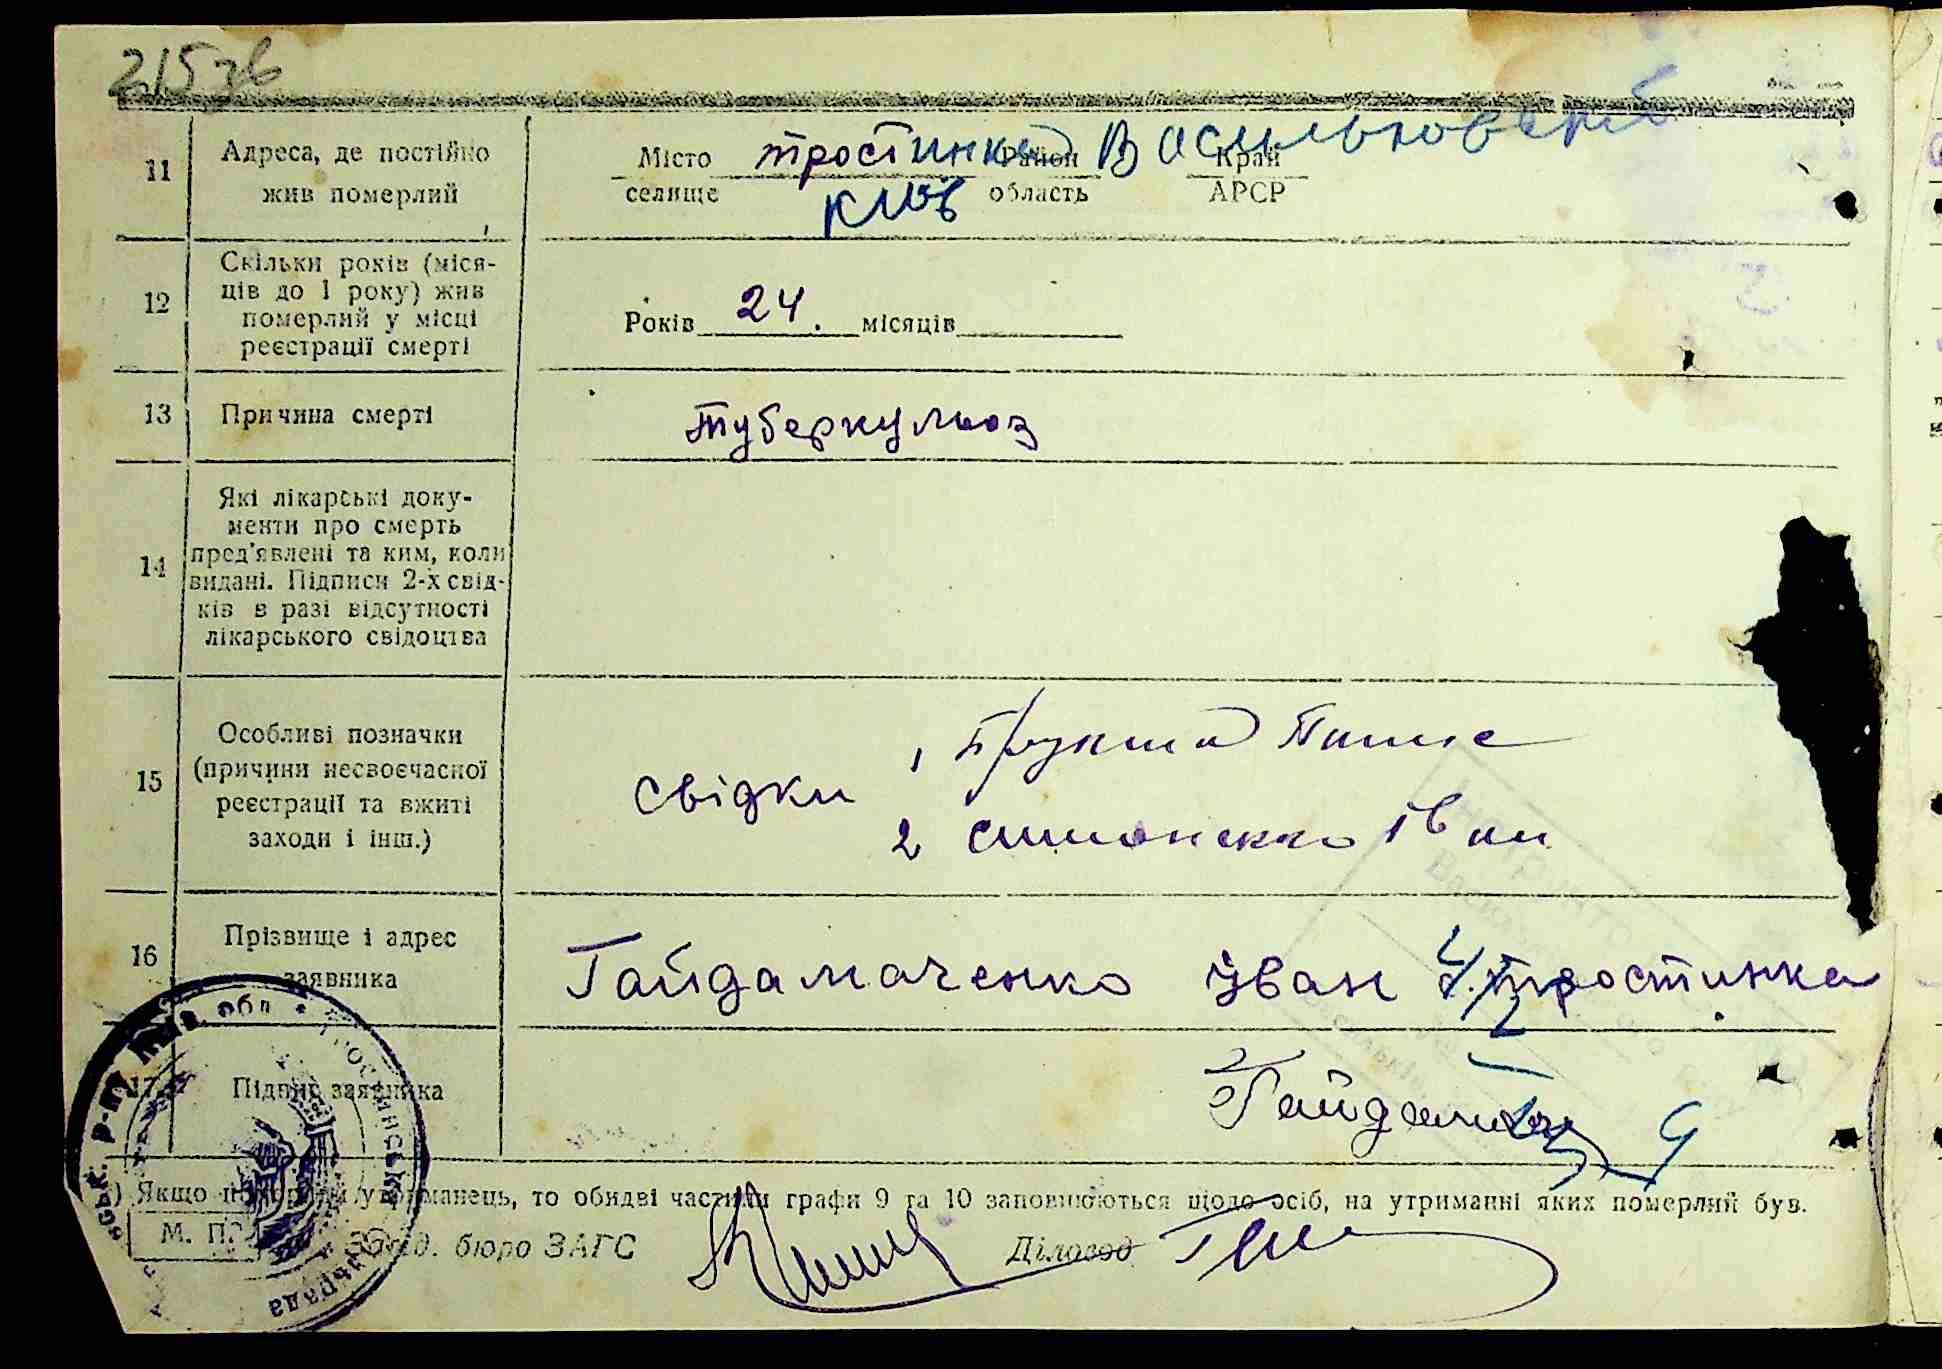 215зв
11
Адреса, де постійно
жив померлий
Місто тростинка Район Васильковский Край
селище Київ область АРСР
12
Скільки років (міся-
ців до 1 року) жив
померлий у місці
реєстрації смерті
Років 24. місяців
13
Причина смерті
туберкульоз
14
Які лікарські доку-
менти про смерть
пред'явлені та ким, коли
видані. Підписи 2-х свід-
ків в разі відсутності
лікарського свідоцтва
15
Особливі позначки
(причини несвоєчасної
реєстрації та вжиті
заходи і інш.)
свідки 1
2 Симоненко Іван
16
Прізвище і адрес
заявника
Гайдамаченко Iван тростинка
17
Підпис заявника
) Якщо утриманець, то обидві частини графи 9 та 10 заповнюються щодо осіб, на утриманні яких померлий був.
М. П.
Завід. бюро ЗАГС
Діловод